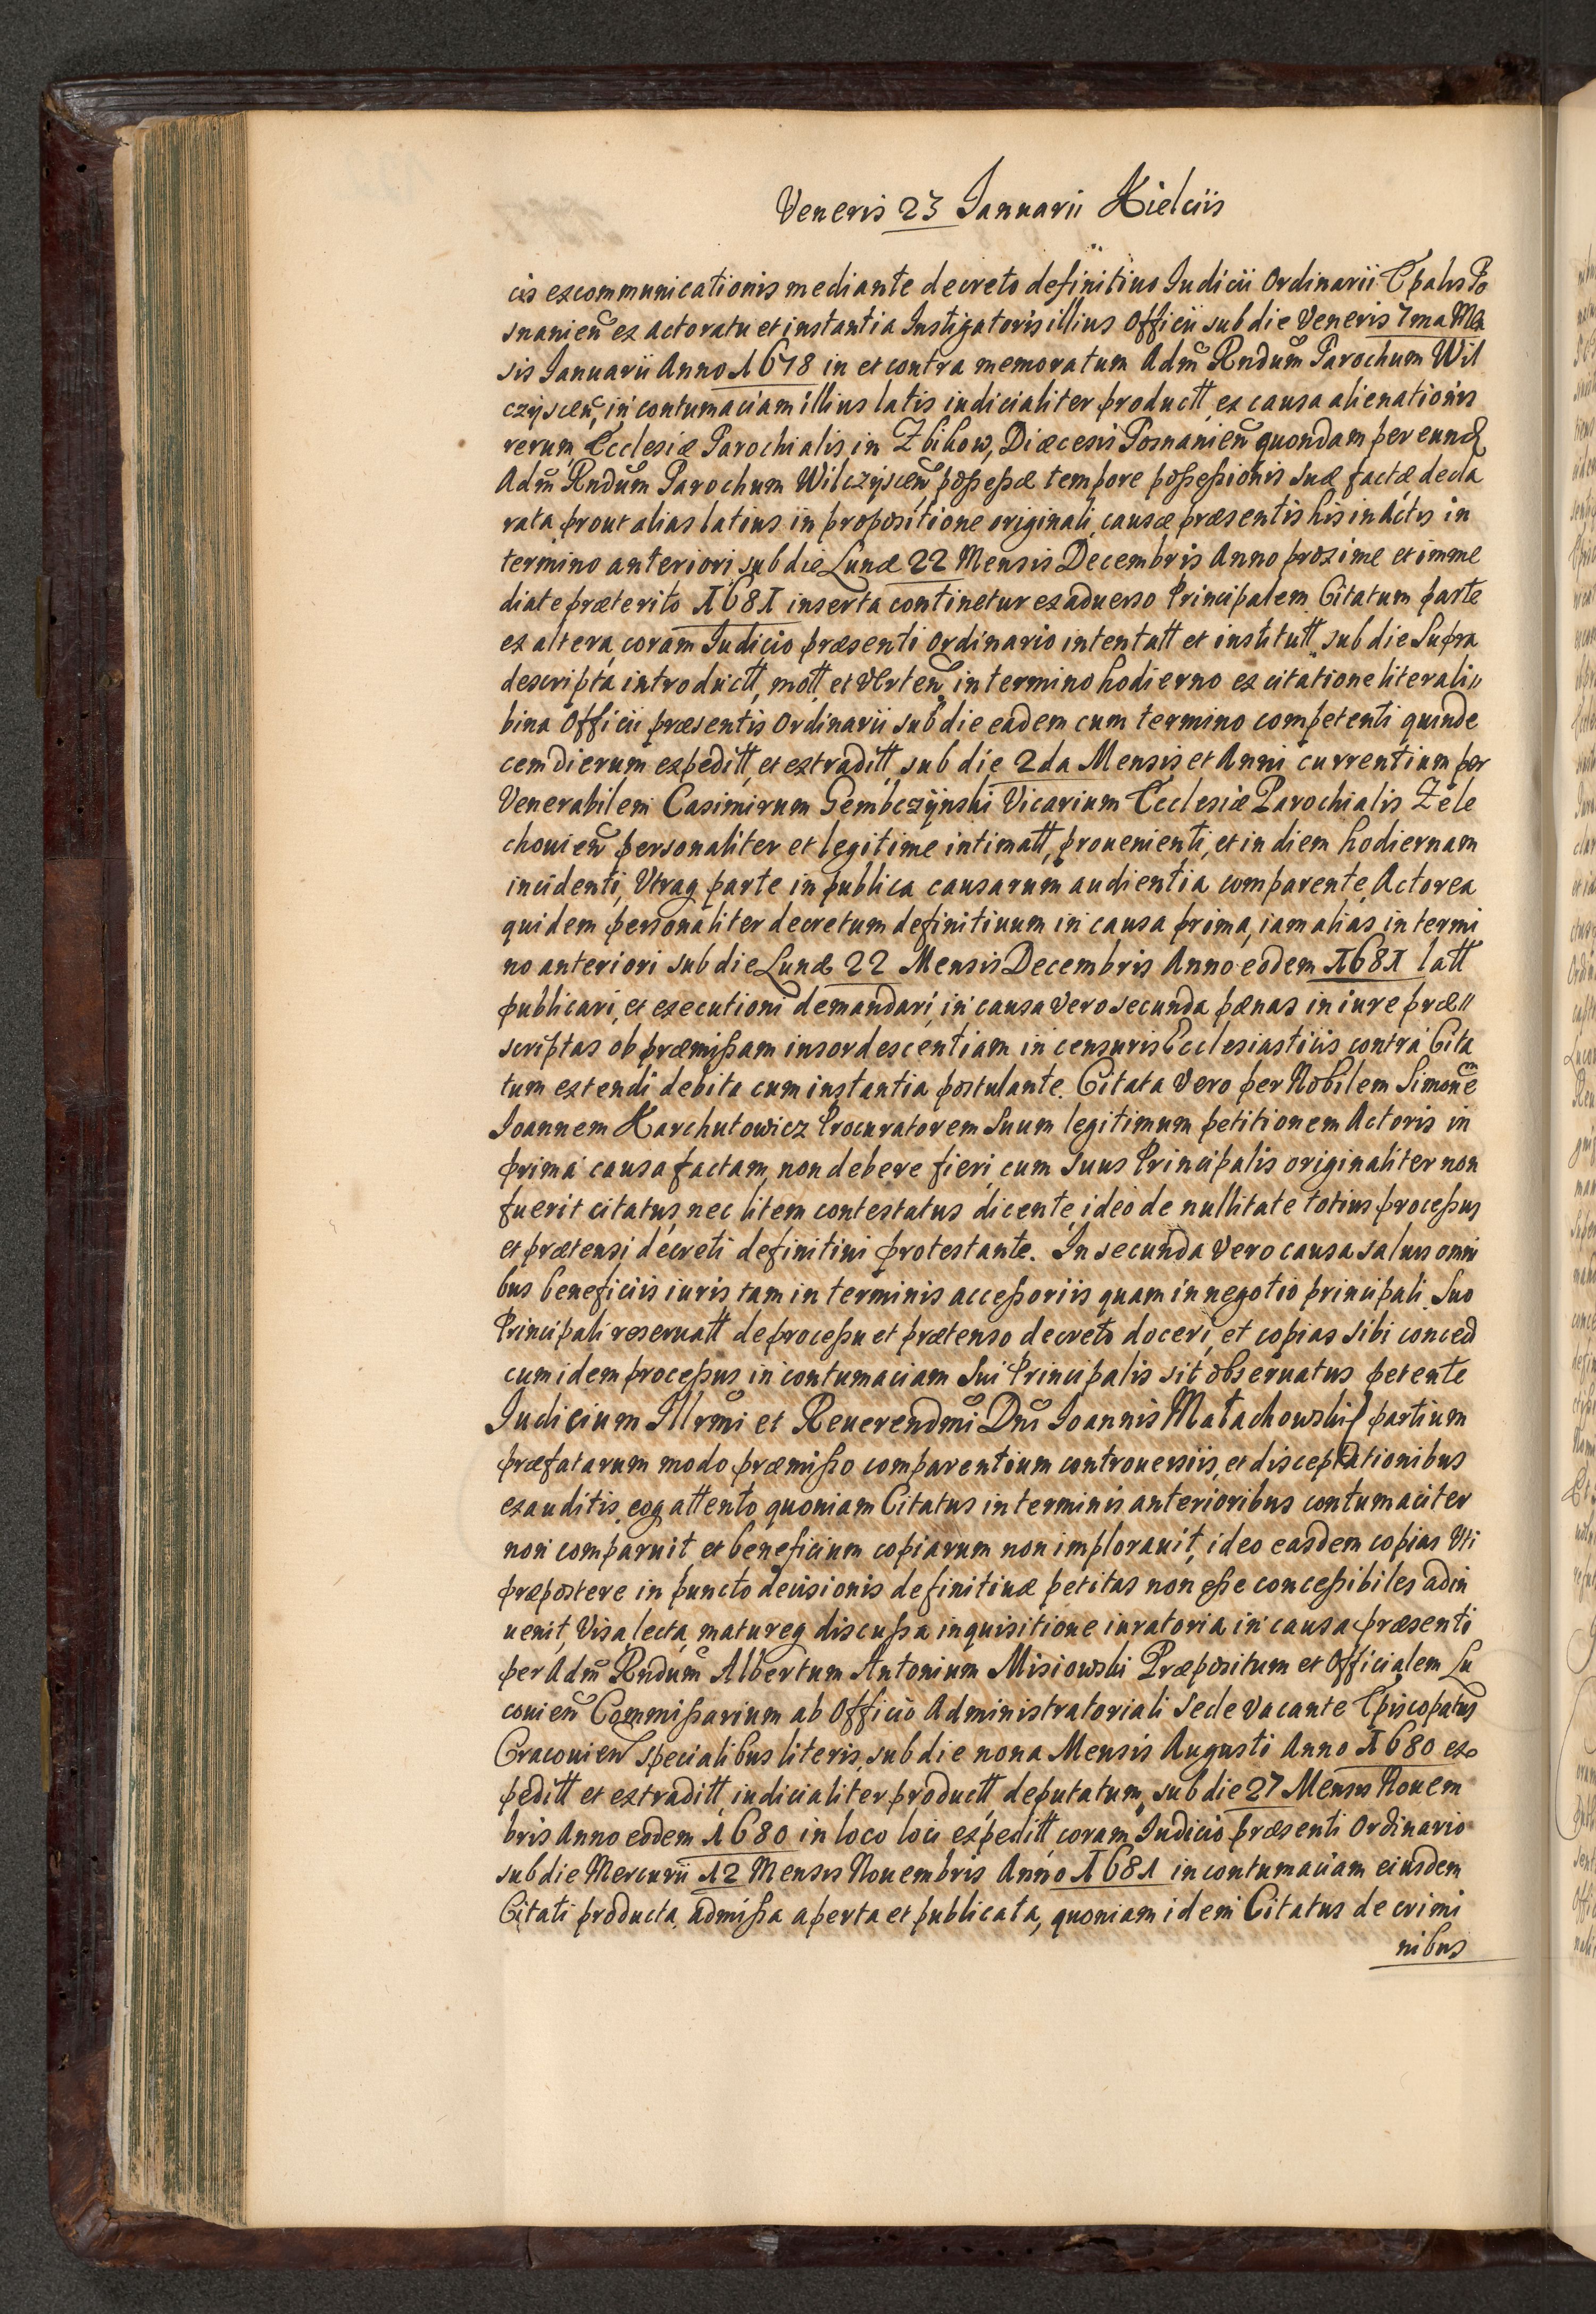 Veneris 23 Ianuarii Kielciis
cis excommunicationis mediante decreto definitiuo Iudicii Ordinarii Epalis Po
snanien ex actoratu et instantia Instigatoris illius Officii sub die Veneris 7ma Men
sis Ianuarii Anno 1678 in et contra memoratum Adm Rndum Parochum Wil
czyscen, in contumaciam illius latis iudicialiter productt ex causa alienationis
rerum Ecclesiæ Parochialis in Zbikow, Diæcesis Posnanien quondam per eund
Adm Rndum Parochum Wilczyscen poßeßæ tempore poßeßionis suæ factæ decla
rata, prout alias latius in propositione originali causæ præsentis his in Actis in
termino anteriori sub die Lunæ 22 Mensis Decembris Anno proxime et imme
diate præterito 1681 inserta continetur ex aduerso Principalem Citatum parte
ex altera, coram Iudicio præsenti Ordinario intentatt et institutt, sub die Supra
descripta introductt, mott, et Vertен in termino hodierno ex citatione literali„
bina Officii præsentis Ordinarii sub die eadem cum termino competenti quinde
cem dierum expeditt, et extraditt, sub die 2da Mensis et Anni currentium per
Venerabilem Casimirum Gembczynski Vicarium Ecclesiæ Parochialis Zele
chouien personaliter et legitime intimatt, prouenienti, et in diem hodiernam
incidenti, Vtraq parte in publica causarum audientia comparente, Actorea
quidem personaliter decretum definitiuum in causa prima, iam alias in termi
no anteriori sub die Lunæ 22 Mensis Decembris Anno eodem 1681 latt
publicari, et executioni demandari, in causa Vero secunda pænas in iure præ„
scriptas ob præmißam insordescentiam in censuris Ecclesiasticis contra Cita
tum extendi debita cum instantia postulante. Citata Vero per Nobilem Simonem
Ioannem Karchutowicz Procuratorem Suum legitimum petitionem Actoris in
prima causa factam, non debere fieri, cum Suus Principalis originaliter non
fuerit citatus, nec litem contestatus dicente, ideo de nullitate totius proceßus
et prætensi decreti definitiui protestante. In secunda Vero causa saluis omni
bus beneficiis iuris, tam in terminis acceßoriis quam in negotio principali Suo
Principali reseruatt de proceßu et prætenso decreto doceri, et copias sibi conced
cum idem proceßus in contumaciam Sui Principalis sit obseruatus petente
Iudicium Illrmi et Reuerendmi Dni Ioannis Małachowski partium
præfatarum modo præmißo comparentium controuersiis, et disceptationibus
exauditis, eoq attento quoniam Citatus in terminis anterioribus contumaciter
non comparuit, et beneficium copiarum non implorauit, ideo easdem copias Vti
præpostere in puncto decisionis definitiuæ petitas non eße conceßibiles adin
uenit, Visa lecta, matureq discußa inquisitione iuratoria in causa præsenti
per Adm Rndum Albertum Antonium Misiowski Præpositum et Officialem Lu
couien Commißarium ab Officio Administratoriali Sede Vacante Episcopatus
Cracouien specialibus literis, sub die nona Mensis Augusti Anno 1680 ex
peditt et extraditt, iudicialiter productt, deputatum, sub die 27 Mensis Nouem
bris Anno eodem 1680 in loco loci expeditt, coram Iudicio præsenti Ordinario
sub die Mercurii 12 Mensis Nouembris Anno 1681 in contumaciam eiusdem
Citati producta, admißa aperta et publicata, quoniam idem Citatus de crimi
nibus